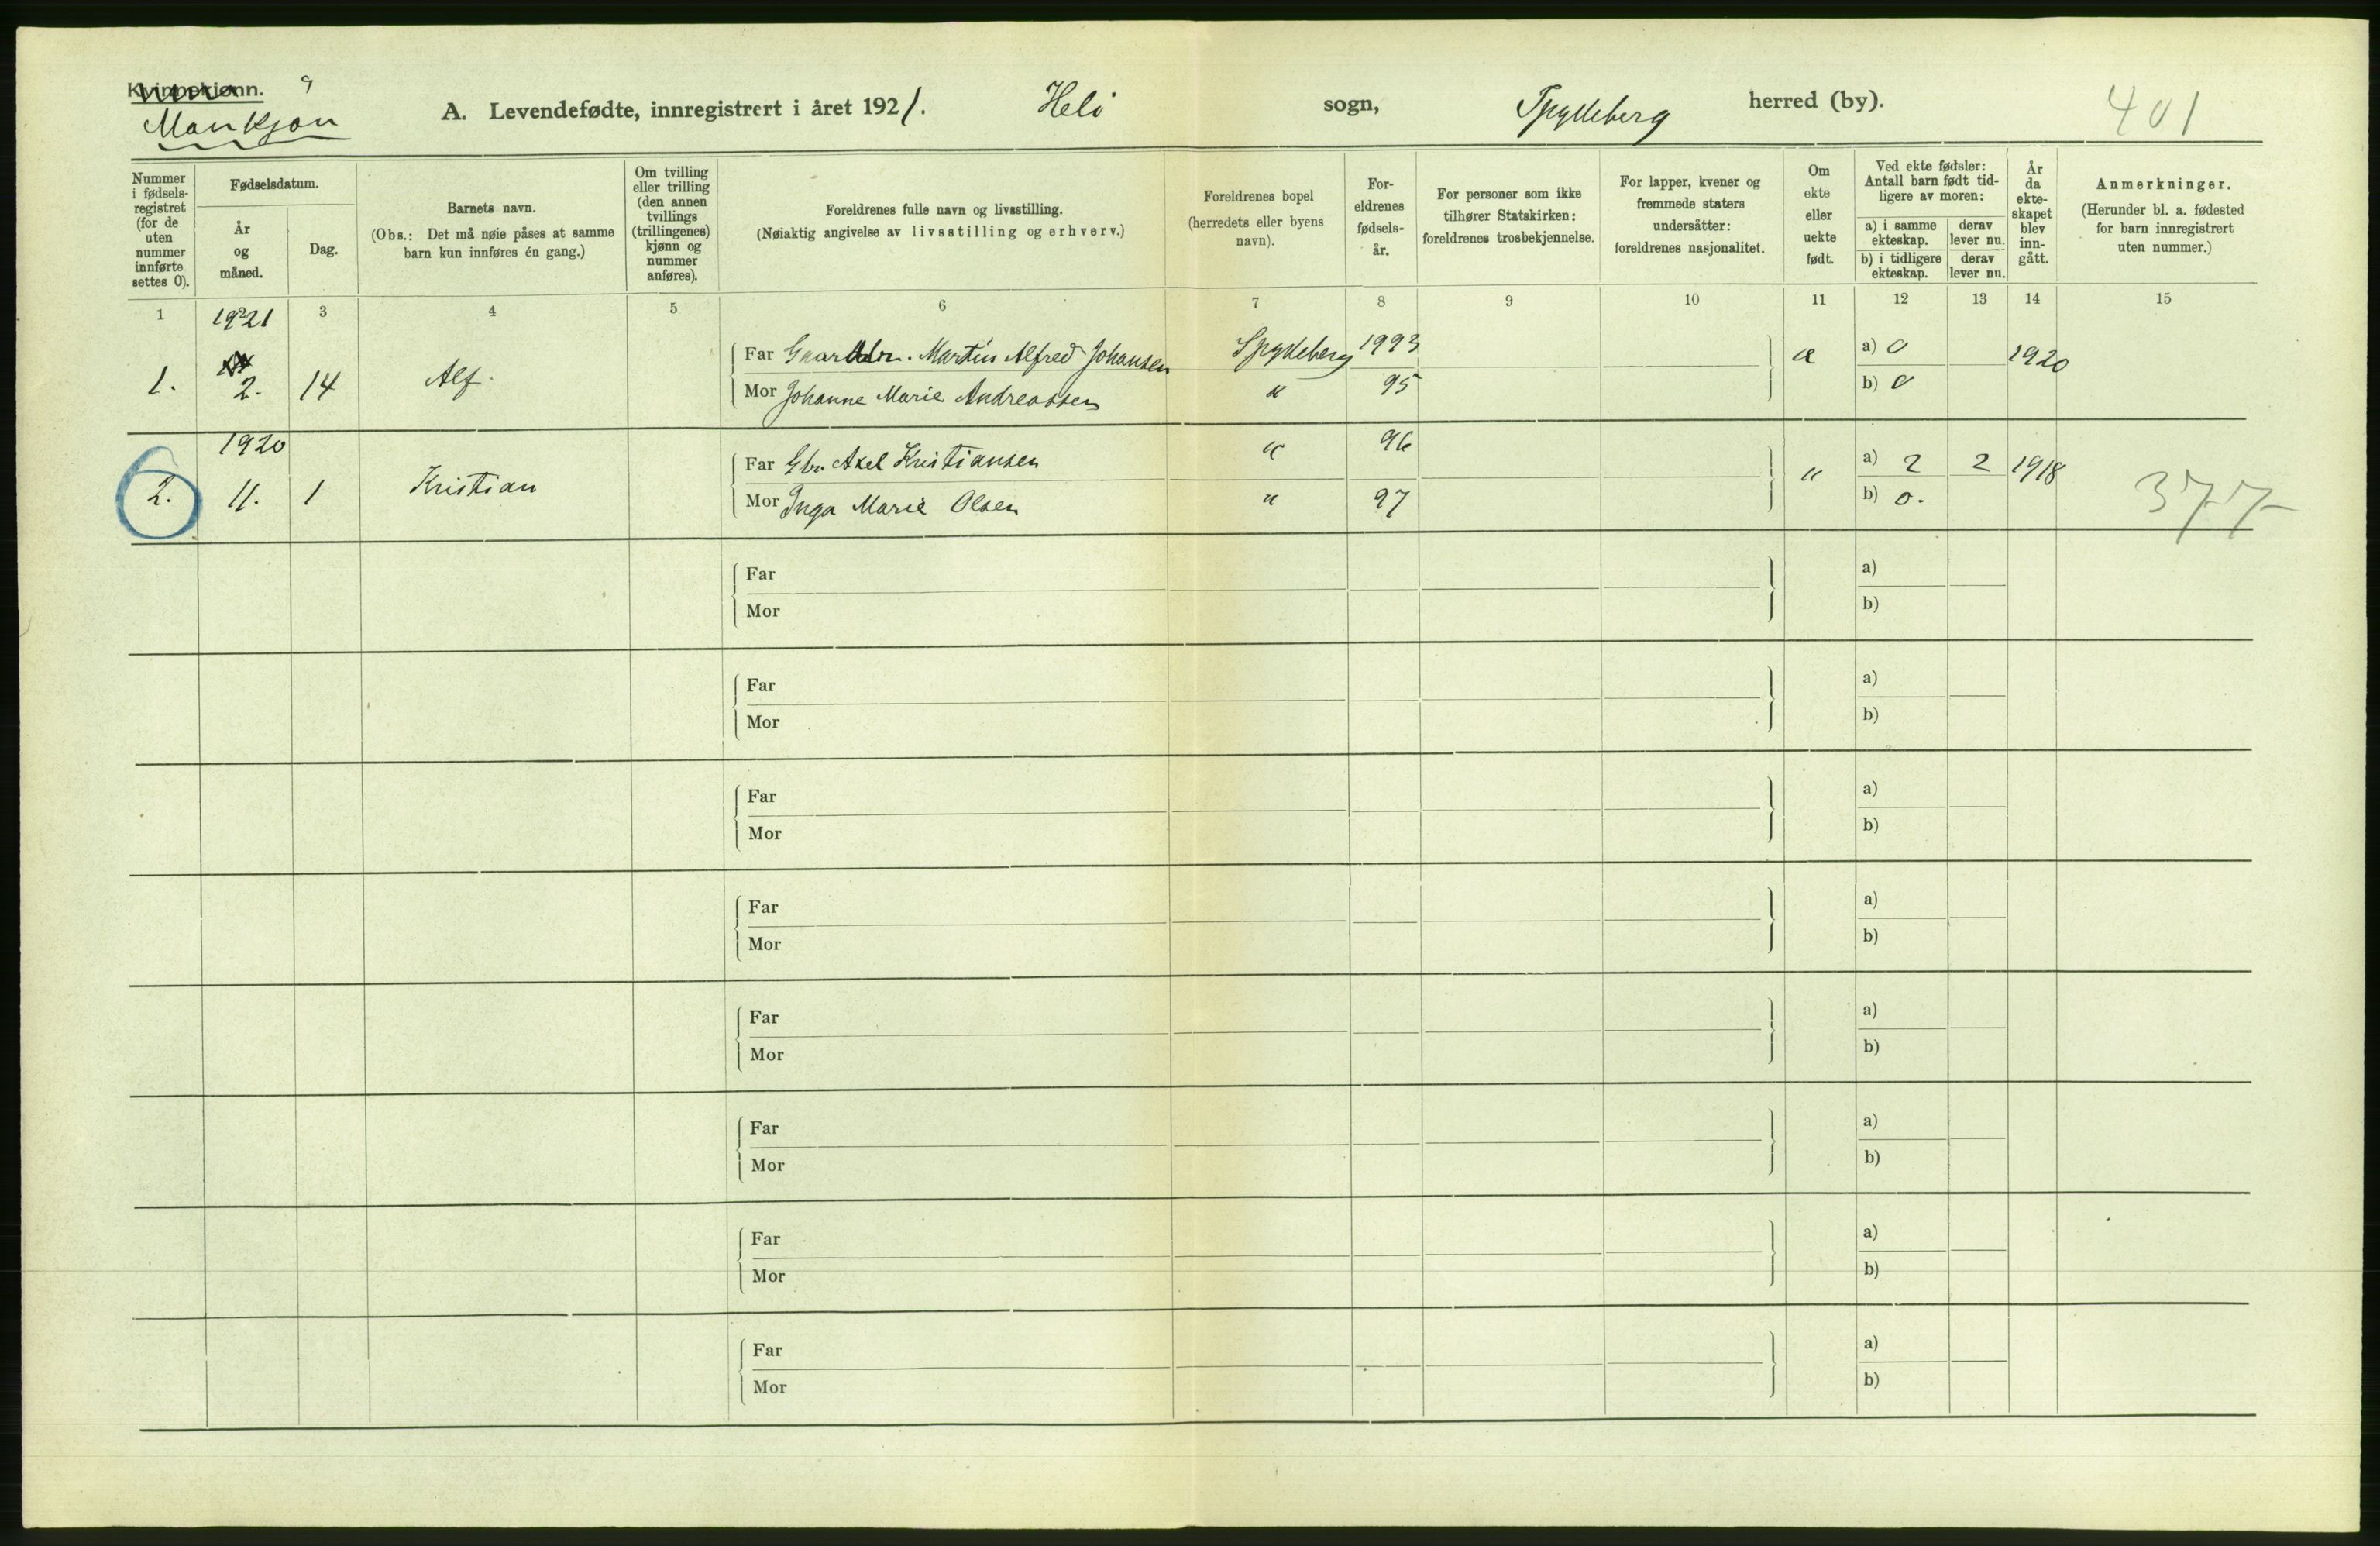 Kvinnekjønn.
Mankjøn
A. Levendefødte, innregistrert i året 1921. Heli sogn, Spydeberg herred (by). 401
Nummer i fødselsregistret (for de uten nummer innførte settes 0).
Fødselsdatum.
År og måned.
Dag.
Barnets navn.
(Obs.: Det må nøie påses at samme barn kun innføres én gang.)
Om tvilling eller trilling (den annen tvillings (trillingenes) kjønn og nummer anføres).
Foreldrenes fulle navn og livsstilling.
(Nøiaktig angivelse av livsstilling og erhverv.)
Foreldrenes bopel
(herredets eller byens navn).
Foreldrenes fødselsår.
For personer som ikke tilhører Statskirken: foreldrenes trosbekjennelse.
For lapper, kvener og fremmede staters undersåtter: foreldrenes nasjonalitet.
Om ekte eller uekte født.
Ved ekte fødsler: Antall barn født tidligere av moren:
a) i samme ekteskap.
derav lever nu.
b) i tidligere ekteskap.
derav lever nu.
År da ekteskapet blev inngått.
Anmerkninger.
(Herunder bl. a. fødested for barn innregistrert uten nummer.)
1 2 3 4 5 6 7 8 9 10 11 12 13 14 15
1921
Far Gaardbr. Martin Alfred Johansen Spydeberg 1993 a) 0 1920
1. 2. 14 Alf.
Mor Johanne Marie Andreassen " 95 b) 0
1920
Far Gbr. Axel Kristiansen " 96 " a) 2 2 1918
2. 11. 1 Kristian
Mor Inga Marie Olsen " 97 b) 0. 377
Far a)
Mor b)
Far a)
Mor b)
Far a)
Mor b)
Far a)
Mor b)
Far a)
Mor b)
Far a)
Mor b)
Far a)
Mor b)
Far a)
Mor b)